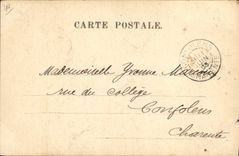 CARTE POSTALE.
Mademoiselle Yvonne
rue du collège
Confolens
Charente